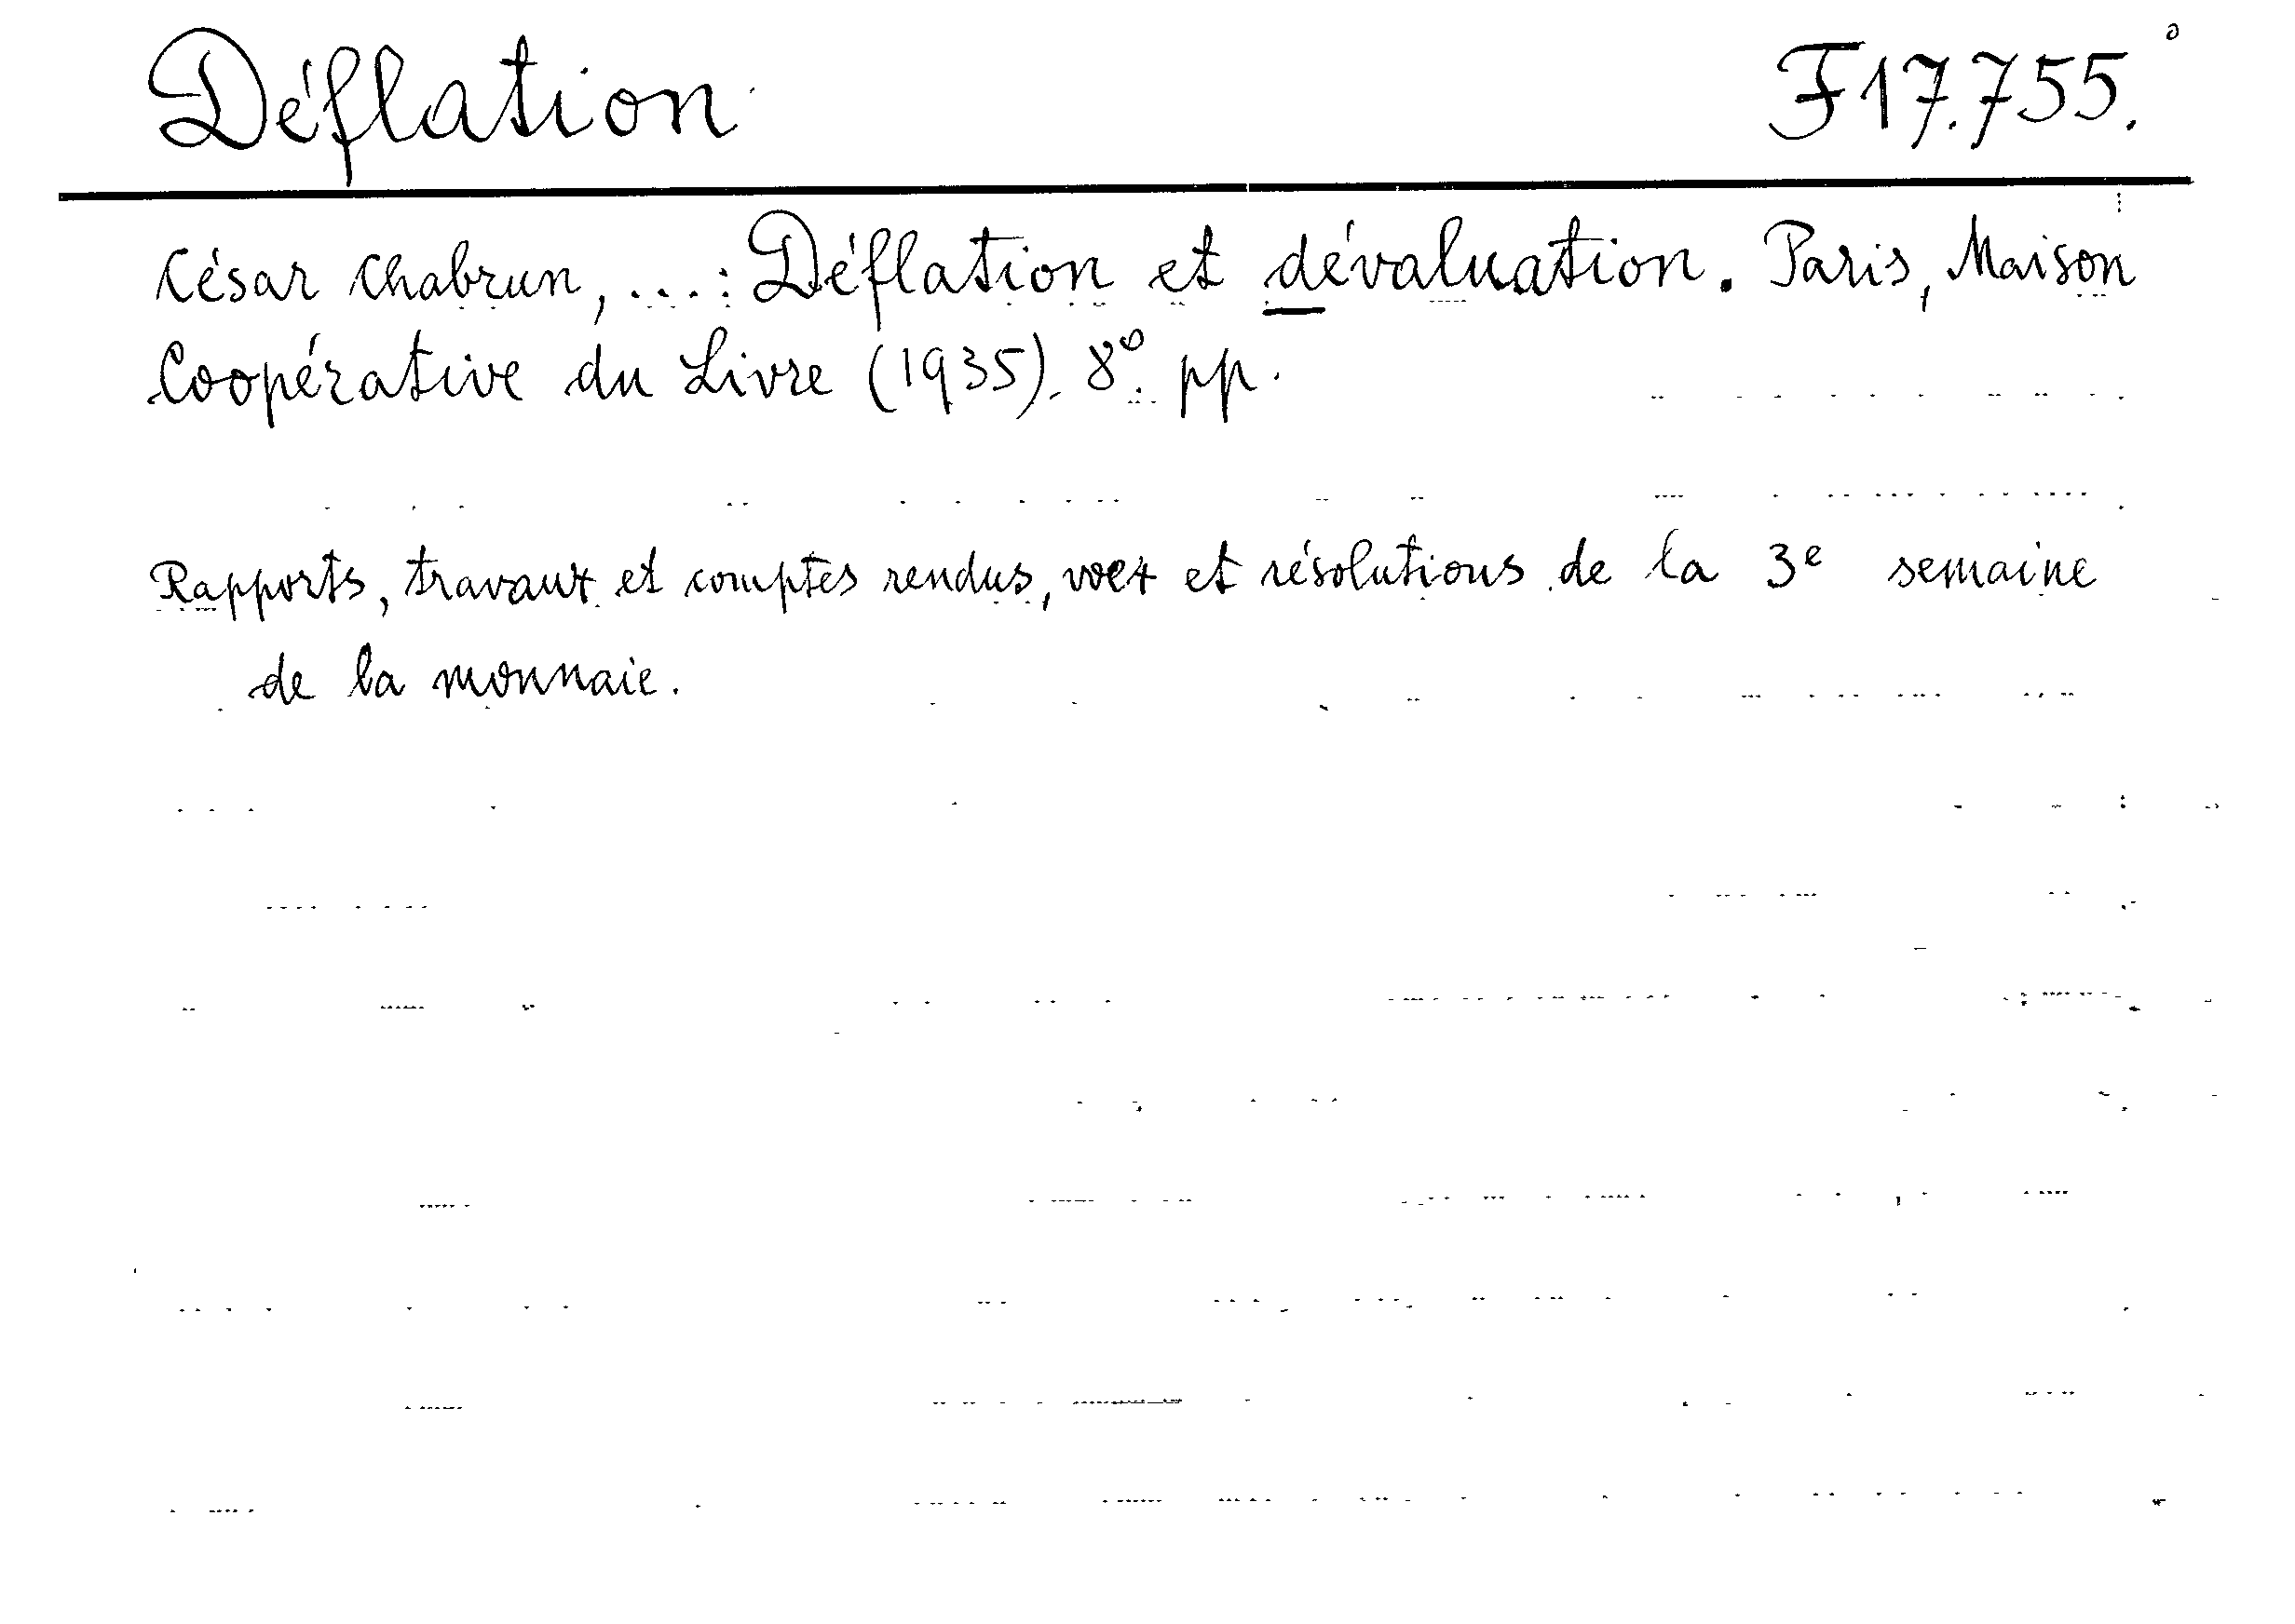 Déflation F17.755.
César Chabrun, ...: Déflation et dévaluation. Paris, Maison
Coopérative du Livre (1935). 8°. pp.
Rapports, travaux et comptes rendus, voex et résolutions de la 3e semaine
de la monnaie.